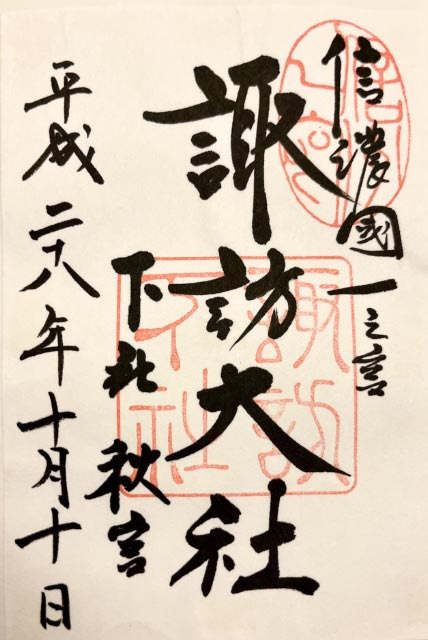 信濃國一之宮
諏訪大社
下社 秋宮
平成二十八年十月十日
諏訪下社